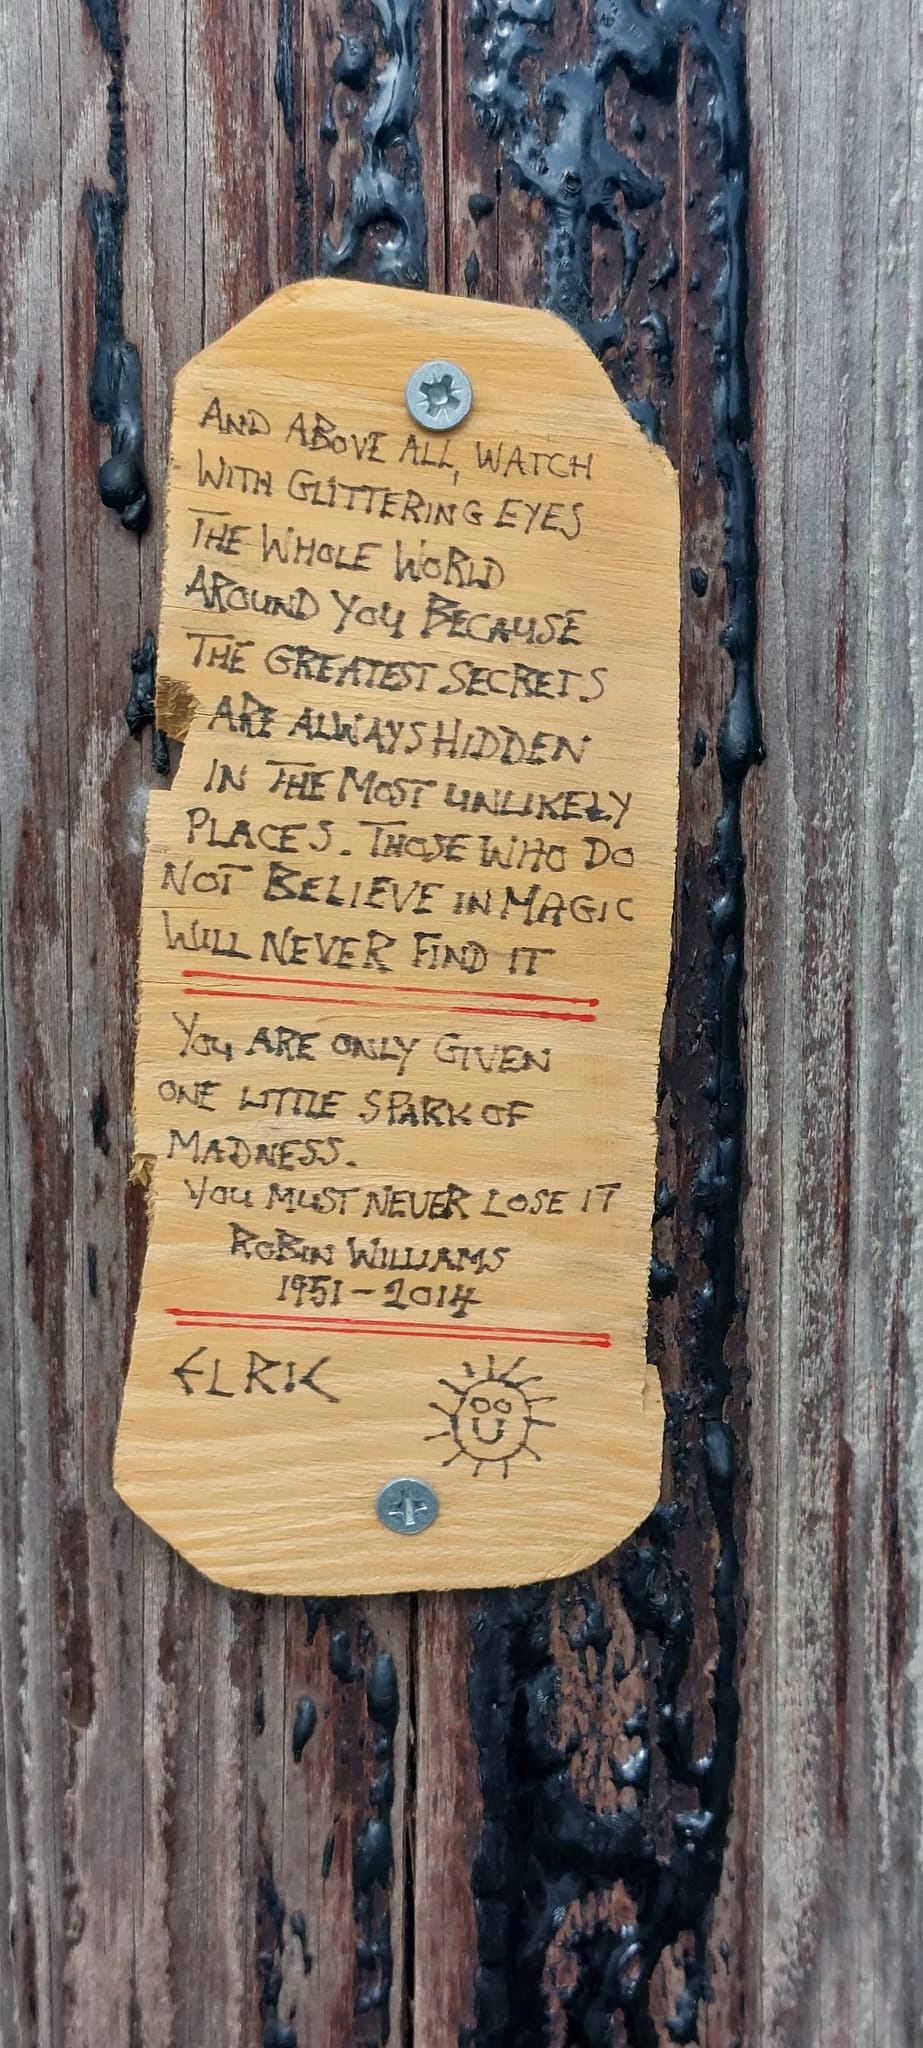 AND ABOVE ALL, WATCH
WITH GLITTERING EYES
THE WHOLE WORLD
AROUND YOU BECAUSE
THE GREATEST SECRETS
ARE ALWAYS HIDDEN
IN THE MOST UNLIKELY
PLACES. THOSE WHO DO
NOT BELIEVE IN MAGIC
WILL NEVER FIND IT
YOU ARE ONLY GIVEN
ONE LITTLE SPARK OF
MADNESS.
YOU MUST NEVER LOSE IT
ROBIN WILLIAMS
1951-2014
ELRIC